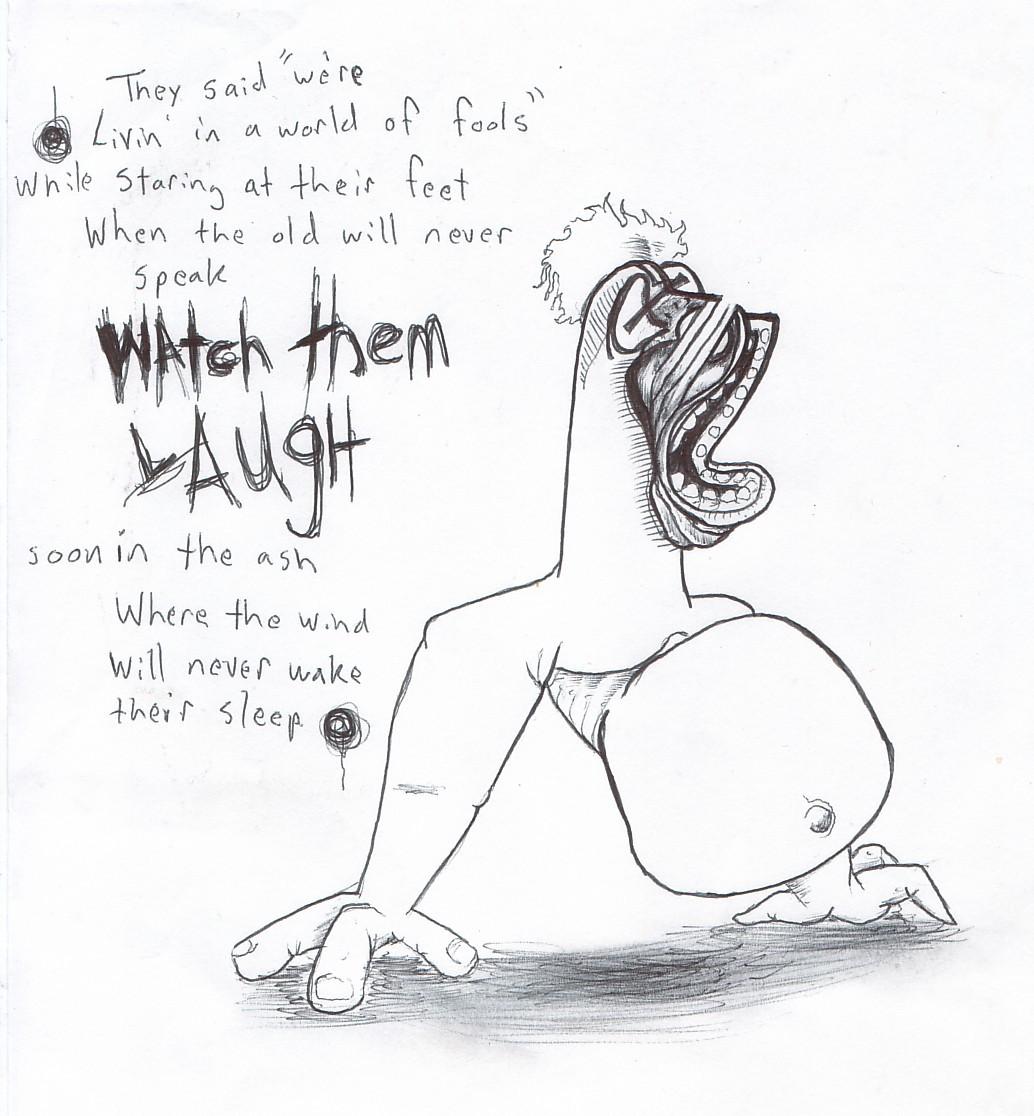 They said "we're
Livin' in a world of fools"
While staring at their feet
When the old will never
speak
WAtch them
LAUgH
soon in the ash
Where the wind
will never wake
their sleep